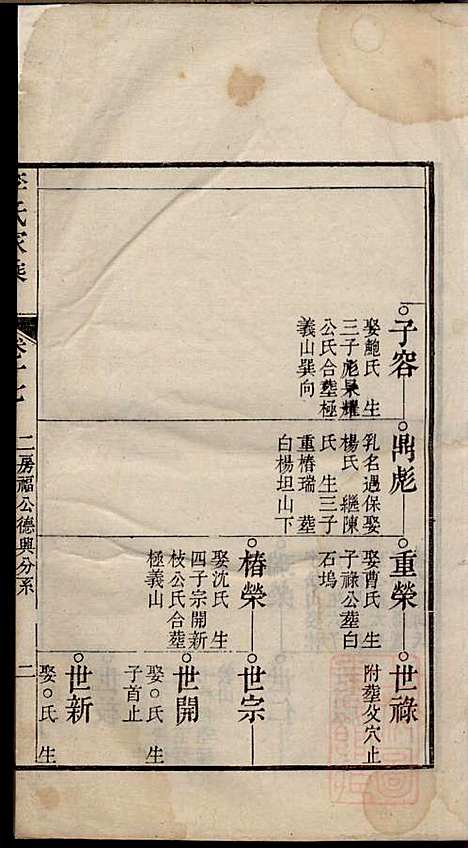 子容
娶鮑氏 生
三子彪杲耀
公氏合塟極
義山巽向
鼎彪
乳名過保娶
楊氏 繼陳
氏 生三子
重椿瑞 塟
白楊坦山下
重榮
娶曹氏 生
子祿公塟白
石塢
世祿
附塟父穴止
椿榮
娶沈氏 生
四子宗開新
枝公氏合塟
極義山
世宗
世開
娶○氏 生
子首止
世新
娶○氏 生
李氏家乘
卷十七
二房福公德興分系
二